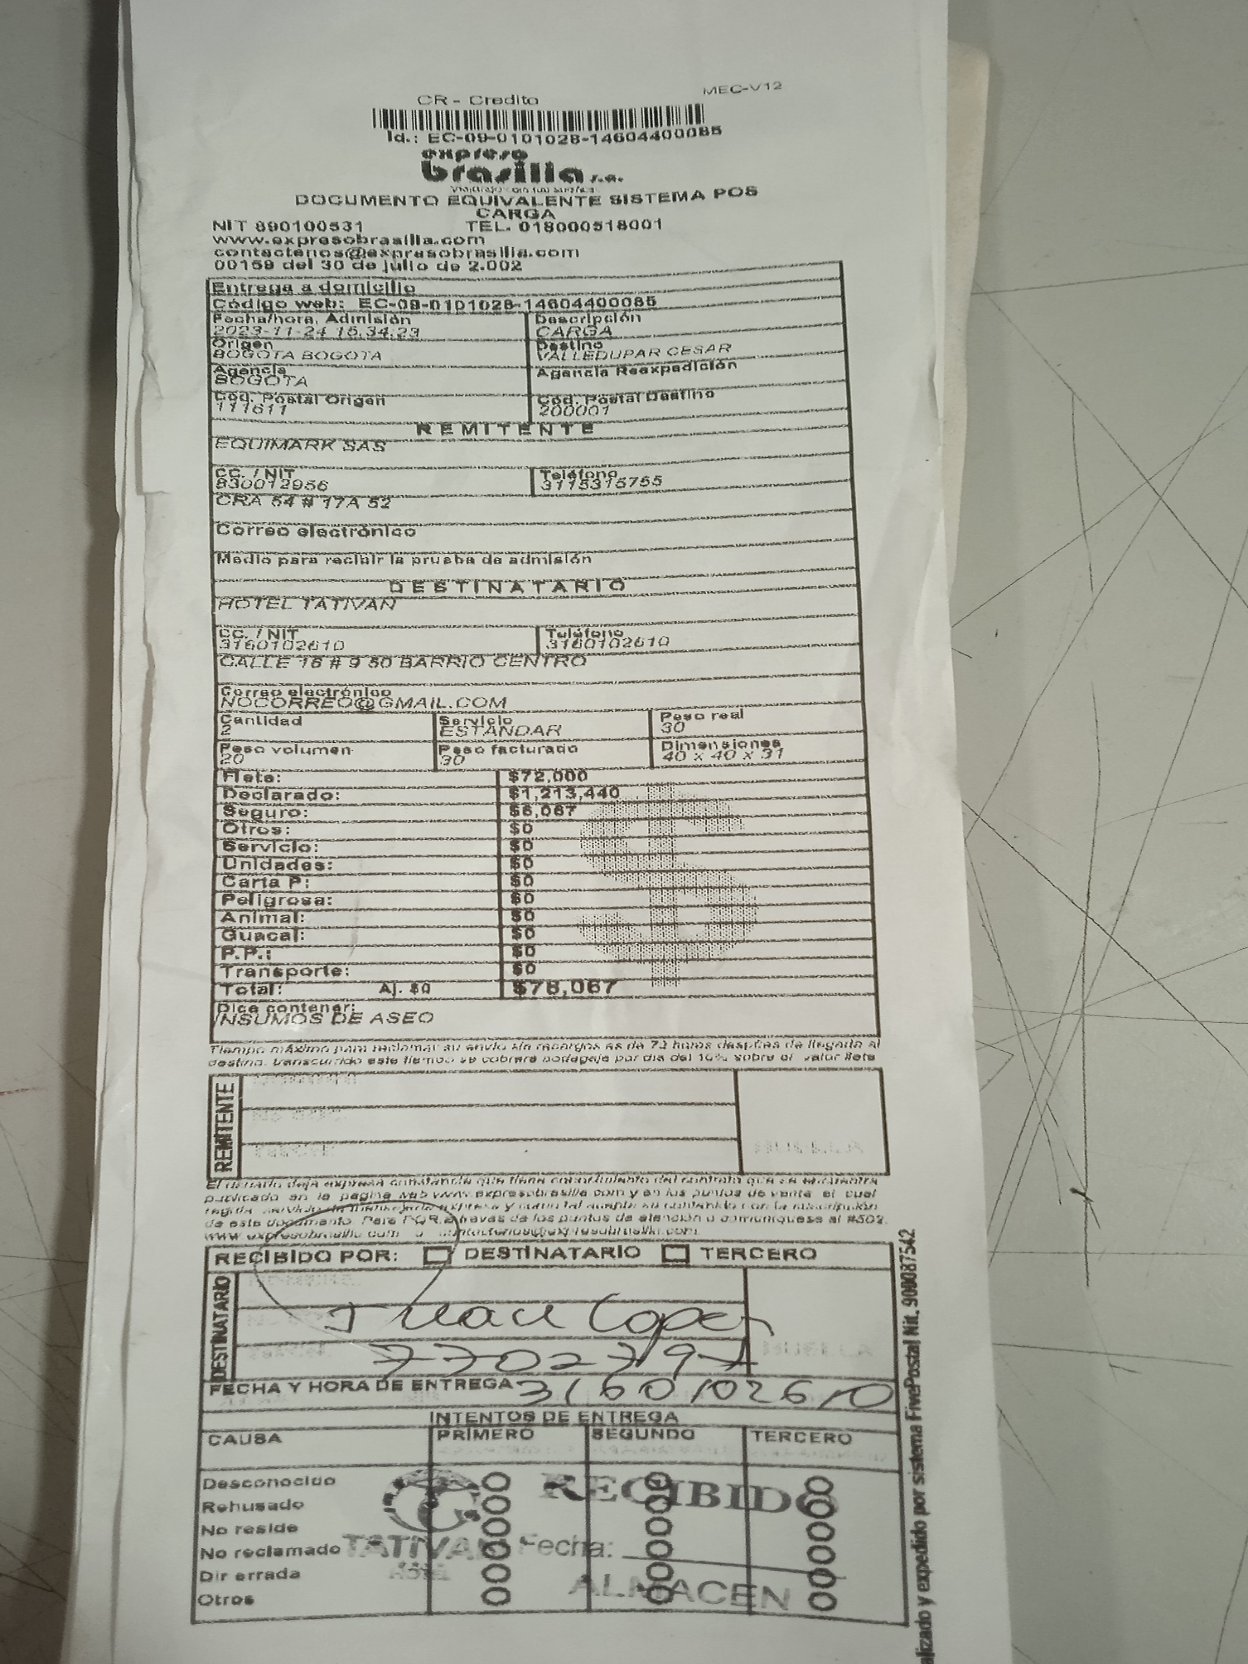 CR - Credito
MEC-V12
Id.: EC-09-0101028-14604400085
expreso
brasilia s.a.
DOCUMENTO EQUIVALENTE SISTEMA POS
CARGA
NIT 890100531 TEL. 018000518001
www.expresobrasilia.com
contactenos@expresobrasilia.com
00159 del 30 de julio de 2.002
Entrega a domicilio
Código web: EC-09-0101028-14604400085
Fecha/hora. Admisión Descripción
2023-11-24 15.34.23 CARGA
Origen Destino
BOGOTA BOGOTA VALLEDUPAR CESAR
Agencia Agencia Reexpedición
BOGOTA
Cód. Postal Origen Cód. Postal Destino
111611 200001
REMITENTE
EQUIMARK SAS
CC. / NIT Teléfono
830012956 3115315755
CRA 54 # 17A 52
Correo electrónico
Medio para recibir la prueba de admisión
DESTINATARIO
HOTEL TATIVAN
CC. / NIT Teléfono
3160102610 3160102610
CALLE 16 # 9 50 BARRIO CENTRO
Correo electrónico
NOCORREO@GMAIL.COM
Cantidad Servicio Peso real
2 ESTANDAR 30
Peso volumen Peso facturado Dimensiones
20 30 40 x 40 x 31
Flete: $72,000
Declarado: $1,213,440
Seguro: $6,067
Otros: $0
Servicio: $0
Unidades: $0
Carta P: $0
Peligrosa: $0
Animal: $0
Guacal: $0
P.P.: $0
Transporte: $0
Total: Aj. $0 $78,067
Dice contener:
INSUMOS DE ASEO
Tiempo máximo para reclamar su envío sin recargos es de 72 horas después de llegado al
destino, transcurrido este tiempo se cobrará bodegaje por día del 10% sobre el valor flete
REMITENTE
El usuario deja expresa constancia que tiene conocimiento del contrato que se encuentra
publicado en la pagina web www.expresobrasilia.com y en los puntos de venta el cual
de este documento. Para PQR a través de los puntos de atención o comuníquese al #502.
RECIBIDO POR: DESTINATARIO TERCERO
DESTINATARIO
Juan Lopez
FECHA Y HORA DE ENTREGA 3160102610
INTENTOS DE ENTREGA
CAUSA PRIMERO SEGUNDO TERCERO
Desconocido
Rehusado
No reside
No reclamado
Dir errada
Otros
RECIBIDO
TATIVAN Fecha:
Hotel
ALMACEN
alizado y expedido por sistema FivePostal Nit. 900087542